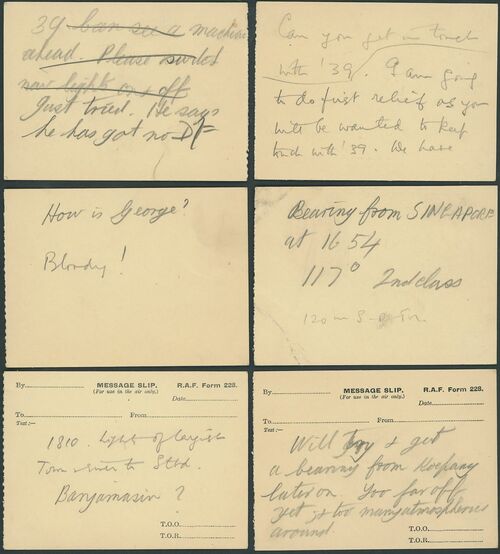 39 can see a machine
ahead. Please switch
nav lights on & off
Just tried. He says
he has got no D/F
Can you get in touch
with '39. I am going
to do first relief as you
will be wanted to keep
touch with '39. We have
How is George?
Bloody!
Bearing from SINGAPORE
at 1654
117° 2nd class
By MESSAGE SLIP. R.A.F. Form 228.
(For use in the air only.)
Date
To From
Text:—
1810. Light of largish
Town &
Banjamasin?
T.O.O.
T.O.R.
By MESSAGE SLIP. R.A.F. Form 228.
(For use in the air only.)
Date
To From
Text:—
Will try & get
a bearing from Koepang
later on. Too far off
yet & too many atmospherics
around.
T.O.O.
T.O.R.